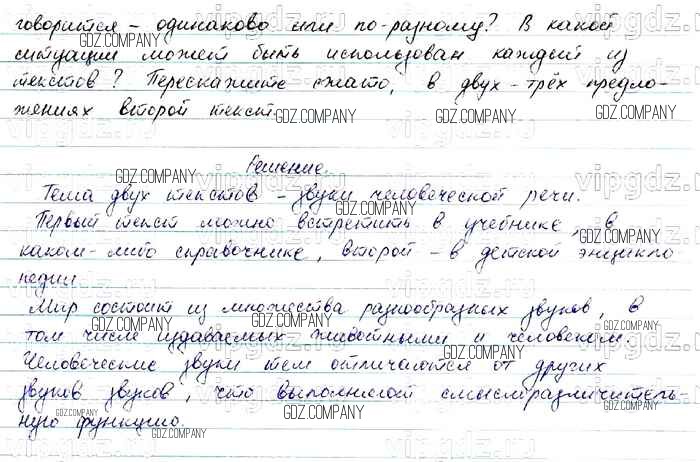 говорится - одинаково или по-разному? В какой
ситуации может быть использован каждый из
текстов? Перескажите сжато, в двух-трёх предло-
жениях второй текст.
Решение.
Тема двух текстов - звуки человеческой речи.
Первый текст можно встретить в учебнике, в
каком-либо справочнике, второй - в детской энцикло
педии.
Мир состоит из множества разнообразных звуков, в
том числе издаваемых животными и человеком.
Человеческие звуки тем отличаются от других
звуков звуков, что выполняют смыслоразличитель-
ную функцию.
GDZ.COMPANY
vipgdz.ru